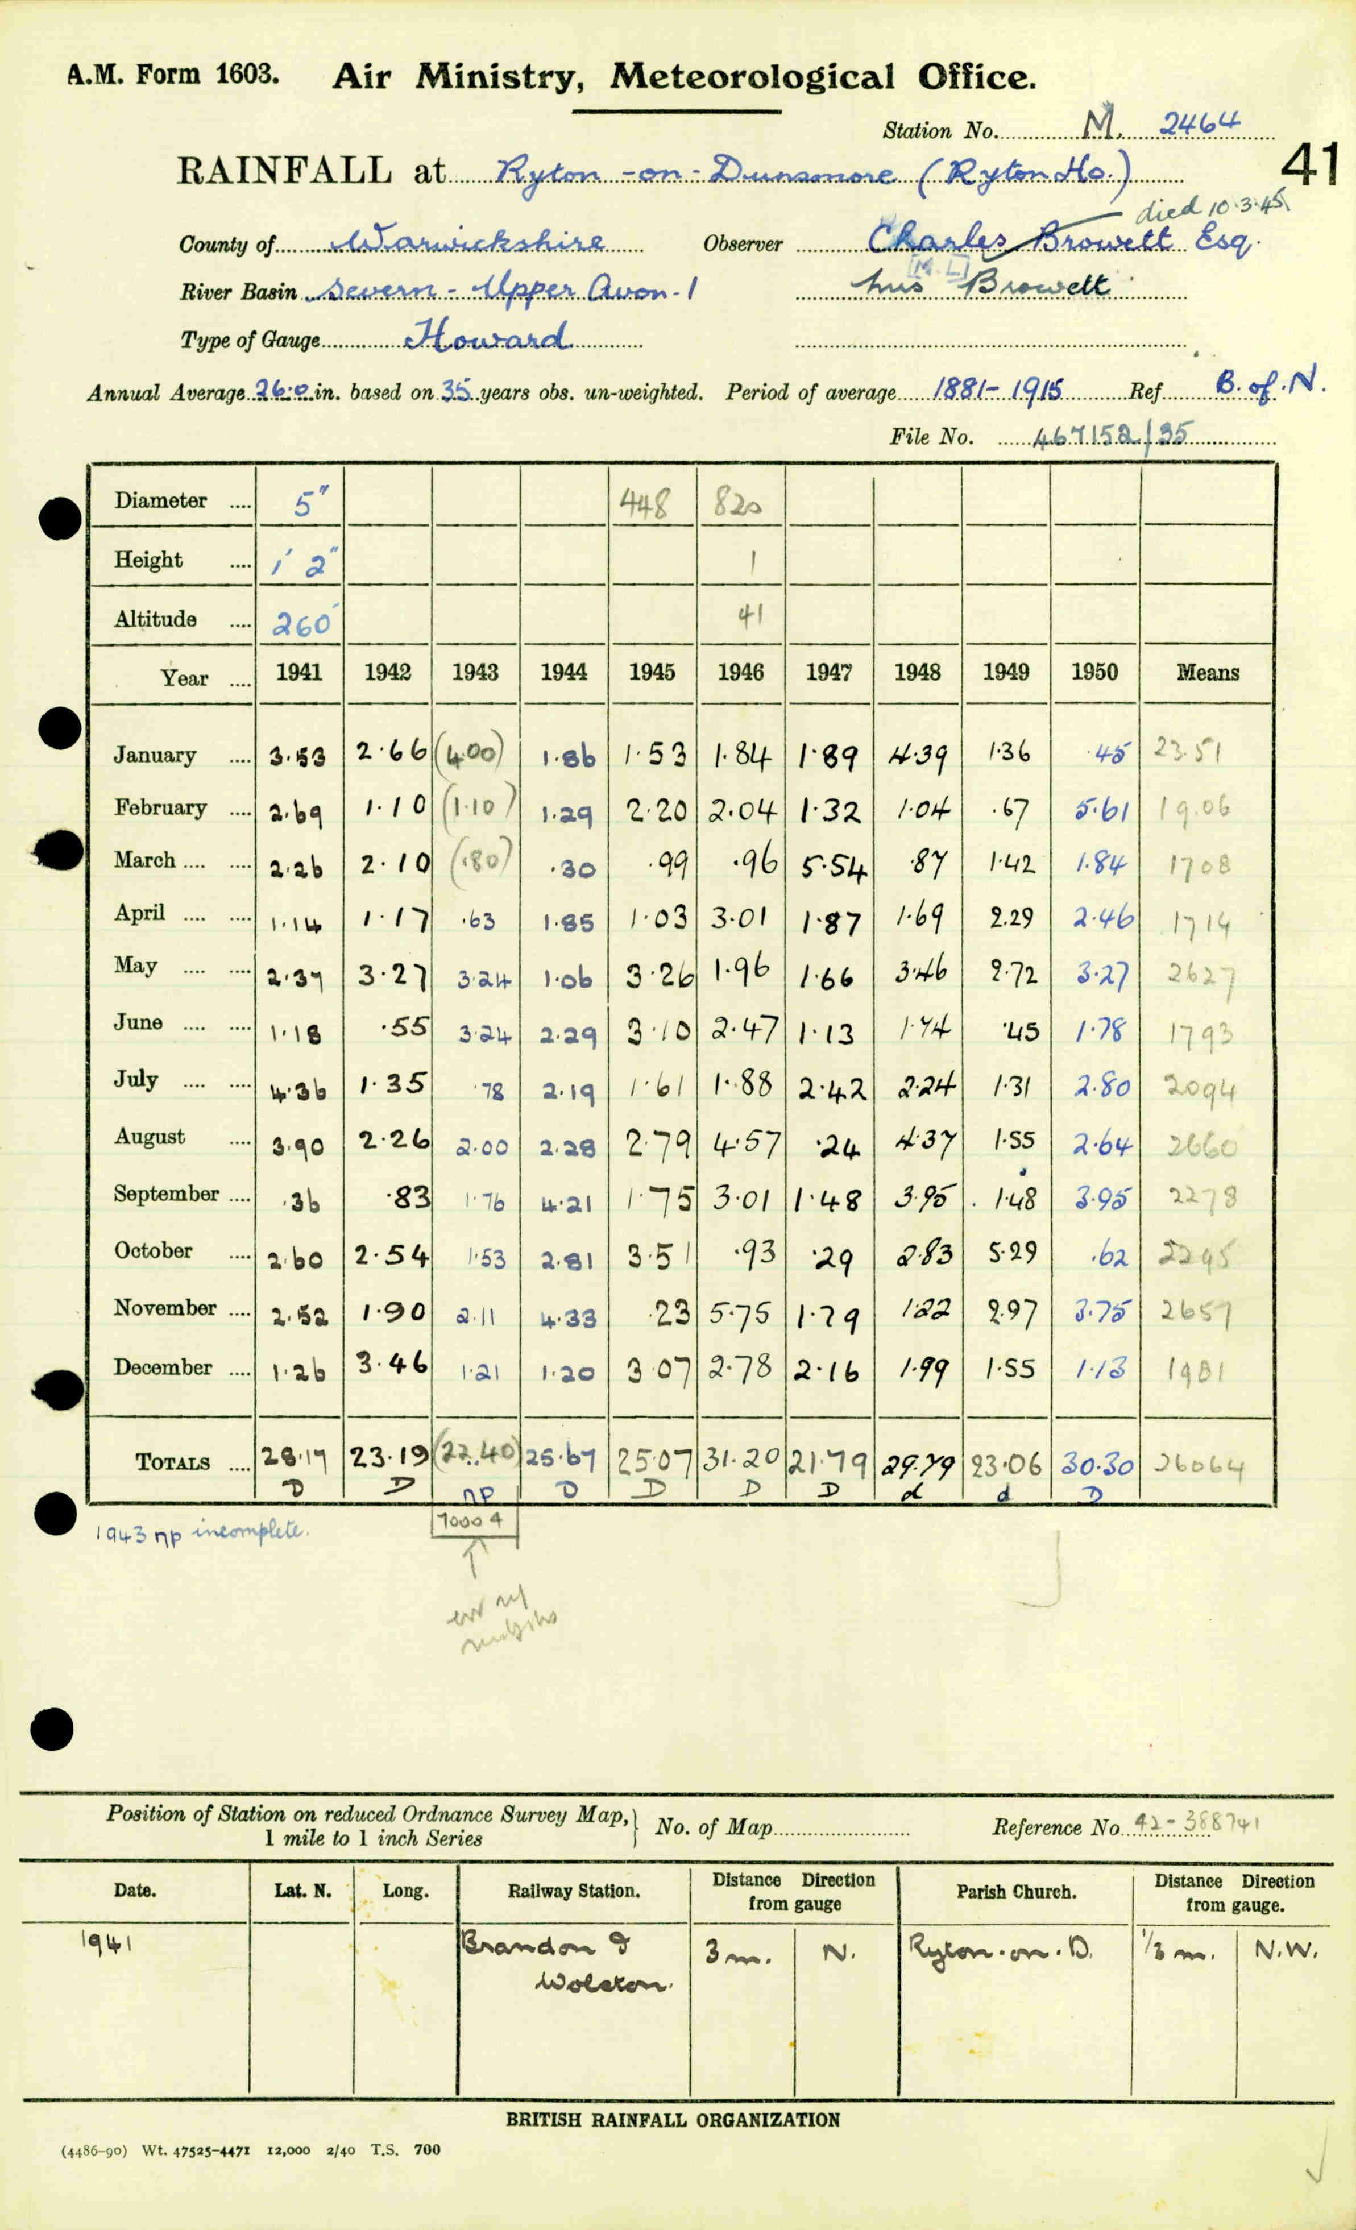 A.M. Form 1603. Air Ministry, Meteorological Office.
Station No. M. 2464
41
RAINFALL at Ryton-on-Dunsmore (Ryton Ho.)
died 10.3.45
County of Warwickshire Observer Charles Browett Esq.
[M.L]
River Basin Severn - Upper Avon - 1 Mrs Browett
Type of Gauge Howard
Annual Average 26.0 in. based on 35 years obs. un-weighted. Period of average 1881-1915 Ref B. of N.
File No. 467152/35
Diameter .... 5" 448 820
Height .... 1' 2" 1
Altitude .... 260' 41
Year .... 1941 1942 1943 1944 1945 1946 1947 1948 1949 1950 Means
January .... 3.53 2.66 (4.00) 1.86 1.53 1.84 1.89 4.39 1.36 .45 23.51
February .... 2.69 1.10 (1.10) 1.29 2.20 2.04 1.32 1.04 .67 5.61 19.06
March .... .... 2.26 2.10 (.80) .30 .99 .96 5.54 .87 1.42 1.84 1708
April .... .... 1.14 1.17 .63 1.85 1.03 3.01 1.87 1.69 2.29 2.46 1714
May .... .... 2.37 3.27 3.24 1.06 3.26 1.96 1.66 3.46 2.72 3.27 2627
June .... .... 1.18 .55 3.24 2.29 3.10 2.47 1.13 1.74 .45 1.78 1793
July .... .... 4.36 1.35 .78 2.19 1.61 1.88 2.42 2.24 1.31 2.80 2094
August .... 3.90 2.26 2.00 2.28 2.79 4.57 .24 4.37 1.55 2.64 2660
September .... .36 .83 1.76 4.21 1.75 3.01 1.48 3.95 1.48 3.95 2278
October .... 2.60 2.54 1.53 2.81 3.51 .93 .29 2.83 5.29 .62 2295
November .... 2.52 1.90 2.11 4.33 .23 5.75 1.79 1.22 2.97 3.75 2657
December .... 1.26 3.46 1.21 1.20 3.07 2.78 2.16 1.99 1.55 1.13 1981
TOTALS .... 28.17 23.19 (22.40) 25.67 25.07 31.20 21.79 29.79 23.06 30.30 26064
D D np D D D D d d D
1943 np incomplete. 70004
Position of Station on reduced Ordnance Survey Map, 1 mile to 1 inch Series } No. of Map Reference No. 42-388741
Date. Lat. N. Long. Railway Station. Distance Direction from gauge Parish Church. Distance Direction from gauge.
1941 Brandon & Wolston. 3 m. N. Ryton-on-D. 1/3 m. N.W.
BRITISH RAINFALL ORGANIZATION
(4486-90) Wt. 47525-4471 12,000 2/40 T.S. 700